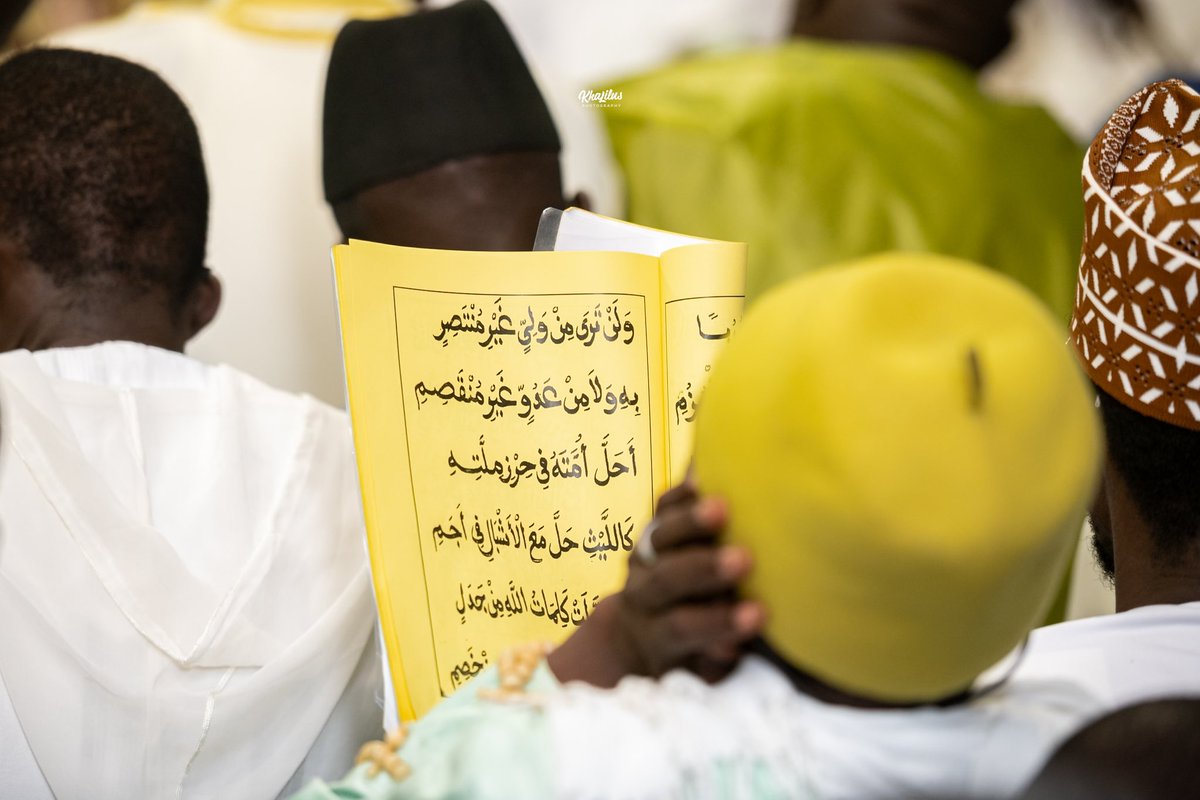 Khalilus
PHOTOGRAPHY
وَلَنْ تَرَى مِنْ وَلِيٍّ غَيْرِ مُنْتَصِرٍ
بِهِ وَلاَ مِنْ عَدُوٍّ غَيْرِ مُنْقَصِمِ
أَحَلَّ أُمَّتَهُ فِي حِرْزِ مِلَّتِهِ
كَاللَّيْثِ حَلَّ مَعَ الْأَشْبَالِ فِي أَجَمِ
كَلِمَاتُ اللَّهِ مِنْ جَدَلٍ